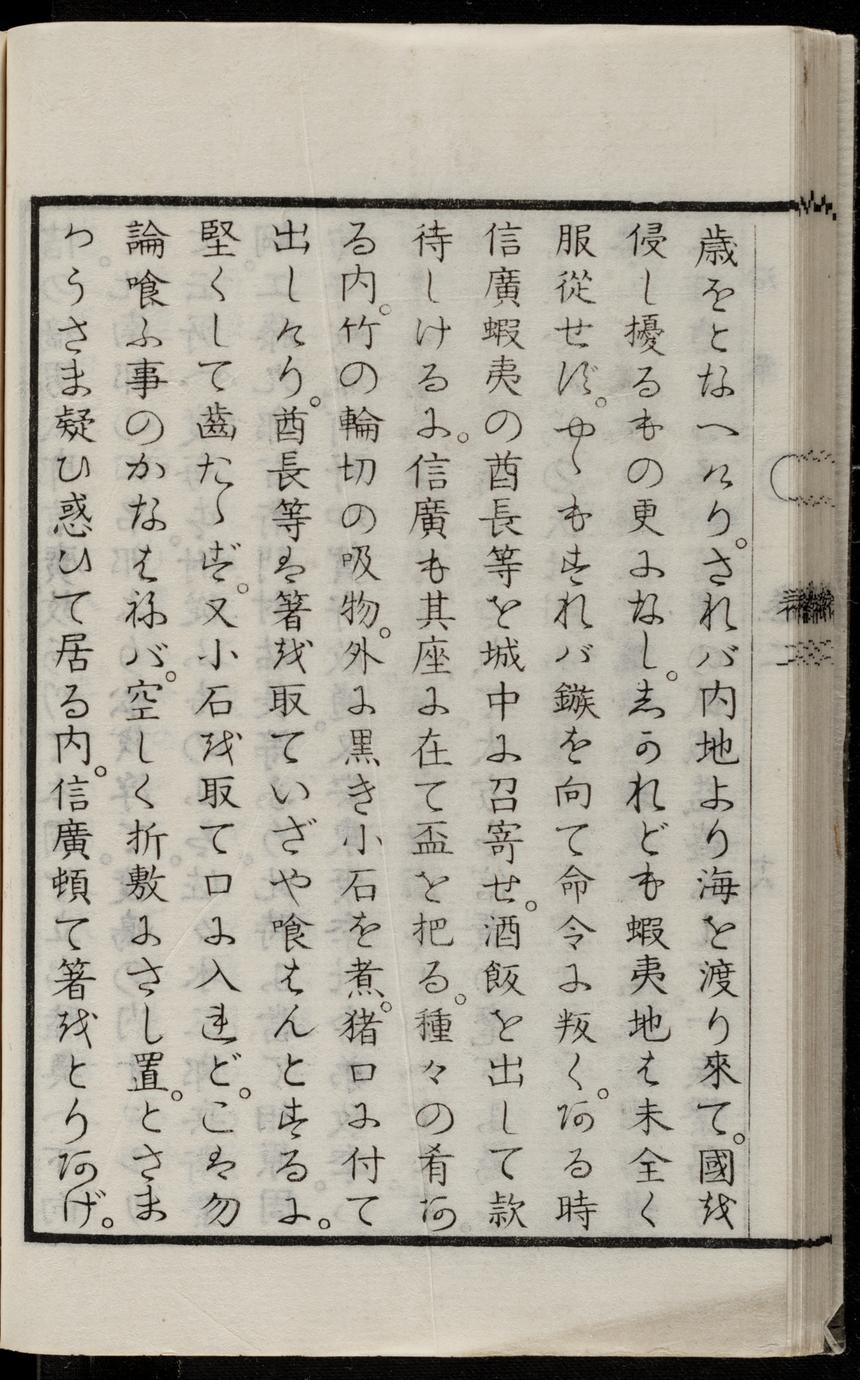 歳をとなへけり。されバ内地より海を渡り來て。國を
侵し擾るもの更になし。しかれども蝦夷地は未全く
服從せず。やゝもすれバ鏃を向て命令に叛く。ある時
信廣蝦夷の酋長等を城中に召寄せ。酒飯を出して款
待しけるに。信廣も其座に在て盃を把る。種々の肴あ
る内。竹の輪切の吸物。外に黒き小石を煮。猪口に付て
出しけり。酋長等は箸を取ていざや喰はんとするに。
堅くして齒たゝず。又小石を取て口に入れど。こは勿
論喰ふ事のかなはねバ。空しく折敷にさし置。とさま
かうさま疑ひ惑ひて居る内。信廣頓て箸をとりあげ。